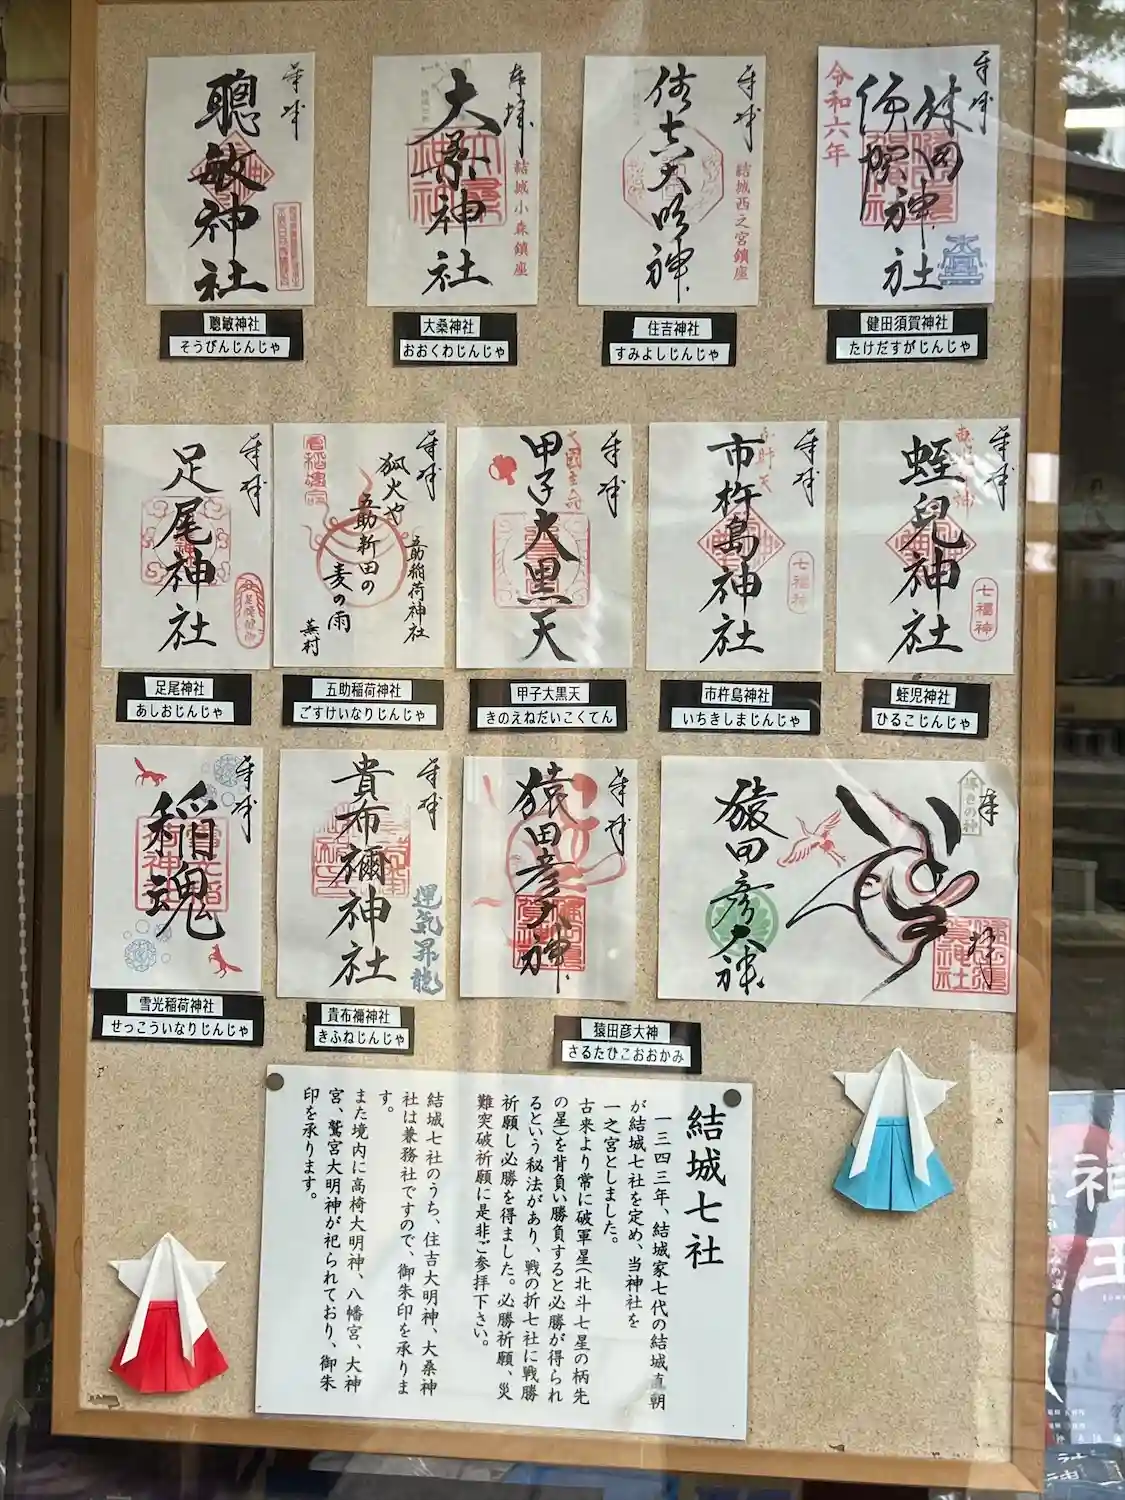 奉拝
聰敏神社
奉拝
大桑神社
結城小森鎮座
奉拝
住吉大明神
結城西之宮鎮座
奉拝
健田神社
須賀神社
令和六年
聰敏神社
そうびんじんじゃ
大桑神社
おおくわじんじゃ
住吉神社
すみよしじんじゃ
健田須賀神社
たけだすがじんじゃ
奉拝
足尾神社
奉拝
五助稲荷神社
狐火や
五助新田の
麦の雨
蕪村
奉拝
甲子大黒天
奉拝
市杵島神社
七福神
奉拝
蛭兒神社
七福神
足尾神社
あしおじんじゃ
五助稲荷神社
ごすけいなりじんじゃ
甲子大黒天
きのえねだいこくてん
市杵島神社
いちきしまじんじゃ
蛭児神社
ひるこじんじゃ
奉拝
稲魂
奉拝
貴布禰神社
運気昇龍
奉拝
猿田彦大神
奉拝
導きの神
猿田彦大神
雪光稲荷神社
せっこういなりじんじゃ
貴布禰神社
きふねじんじゃ
猿田彦大神
さるたひこおおかみ
結城七社
一三四三年、結城家七代の結城直朝
が結城七社を定め、当神社を
一之宮としました。
古来より常に破軍星(北斗七星の柄先
の星)を背負い勝負すると必勝が得られ
るという秘法があり、戦の折七社に戦勝
祈願し必勝を得ました。必勝祈願、災
難突破祈願に是非ご参拝下さい。
結城七社のうち、住吉大明神、大桑神
社は兼務社ですので、御朱印を承りま
す。
また境内に高椅大明神、八幡宮、大神
宮、鷲宮大明神が祀られており、御朱
印を承ります。